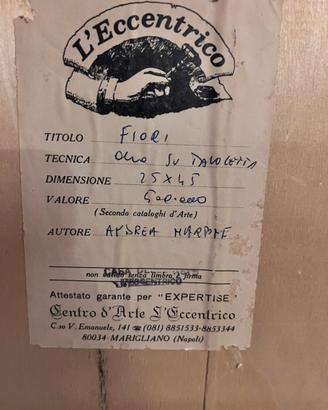 L'Eccentrico
TITOLO FIORI
TECNICA Olio SU TAVOLETTA
DIMENSIONE 25X45
VALORE
(Secondo cataloghi d'Arte)
AUTORE ANDREA
non valido senza timbro e firma
L'ECCENTRICO
Attestato garante per "EXPERTISE"
Centro d'Arte L'Eccentrico
C.so V. Emanuele, 141 ☎ (081) 8851533-8853344
80034 MARIGLIANO (Napoli)